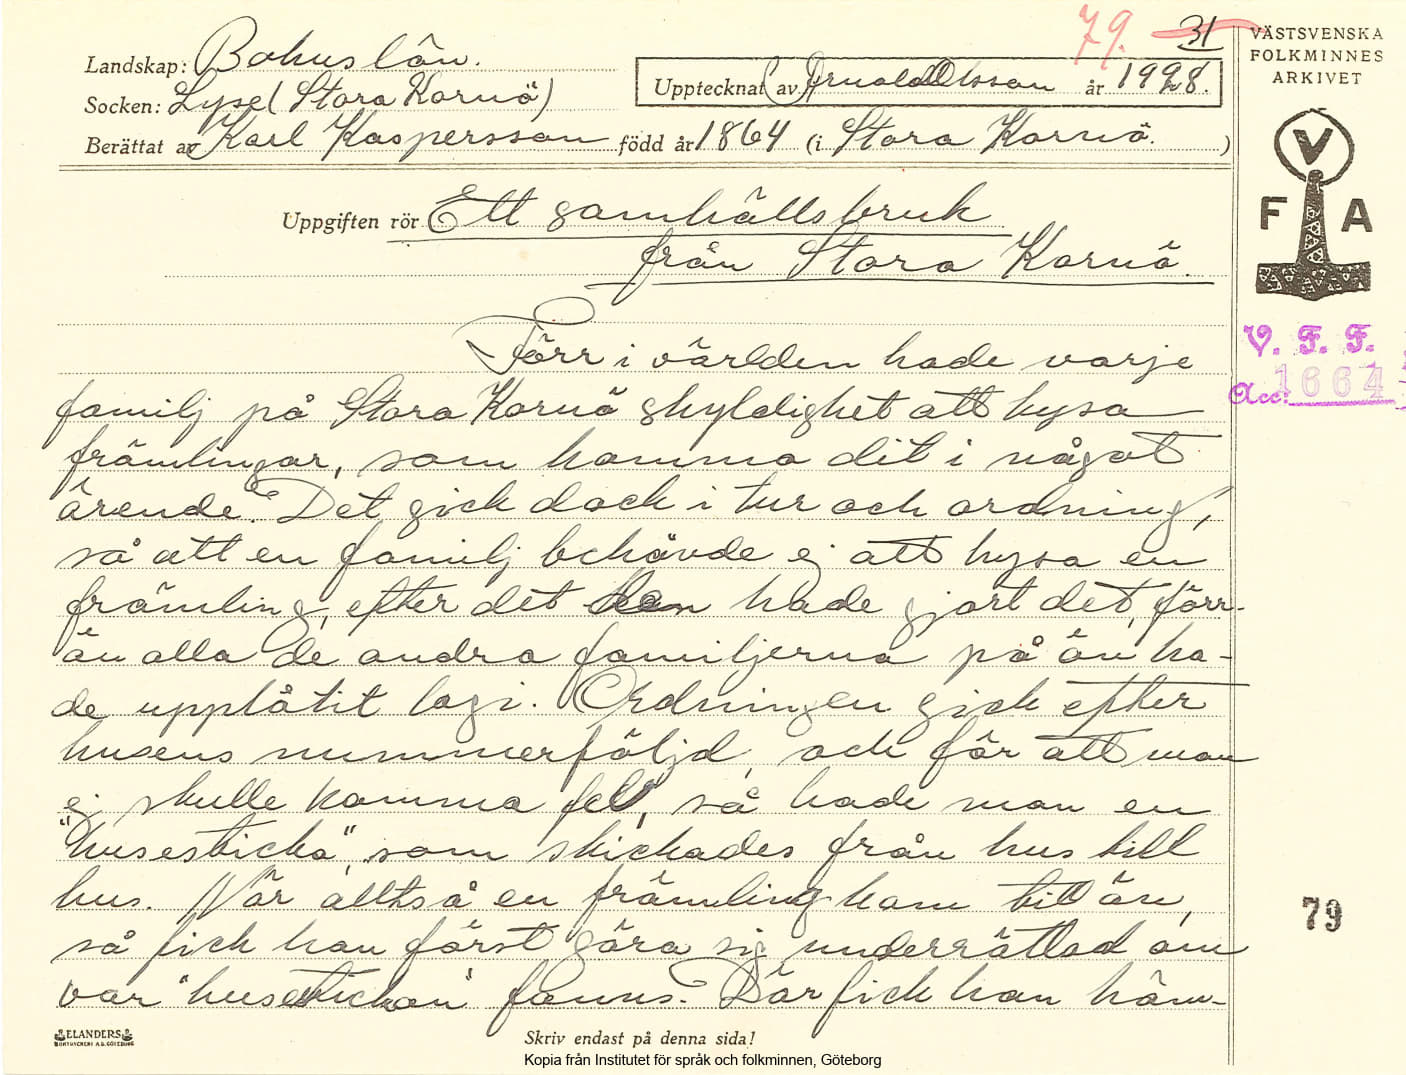 79. 31
Landskap: Bohuslän.
Socken: Lyse (Stora Kornö)
Upptecknat av Arnold Olsson år 1928.
Berättat av Karl Kaspersson född år 1864 (i Stora Kornö. )
Uppgiften rör Ett samhällsbruk
från Stora Kornö.
Förr i världen hade varje
familj på Stora Kornö skyldighet att hysa
främlingar, som kommo dit i något
ärende. Det gick dock i tur och ordning,
så att en familj behövde ej att hysa en
främling, efter det den hade gjort det, förr-
än alla de andra familjerna på ön ha-
de upplåtit logi. Ordningen gick efter
husens nummerföljd, och för att man
ej skulle komma fel, så hade man en
"husesticka", som skickades från hus till
hus. När alltså en främling kom till ön,
så fick han först göra sig underrättad om
var "husestickan" fanns. Där fick han häm-
ELANDERS
BOKTRYCKERI A.B. GÖTEBORG
Skriv endast på denna sida!
Kopia från Institutet för språk och folkminnen, Göteborg
VÄSTSVENSKA
FOLKMINNES
ARKIVET
V
F A
V. F. F.
Acc: 1664
79